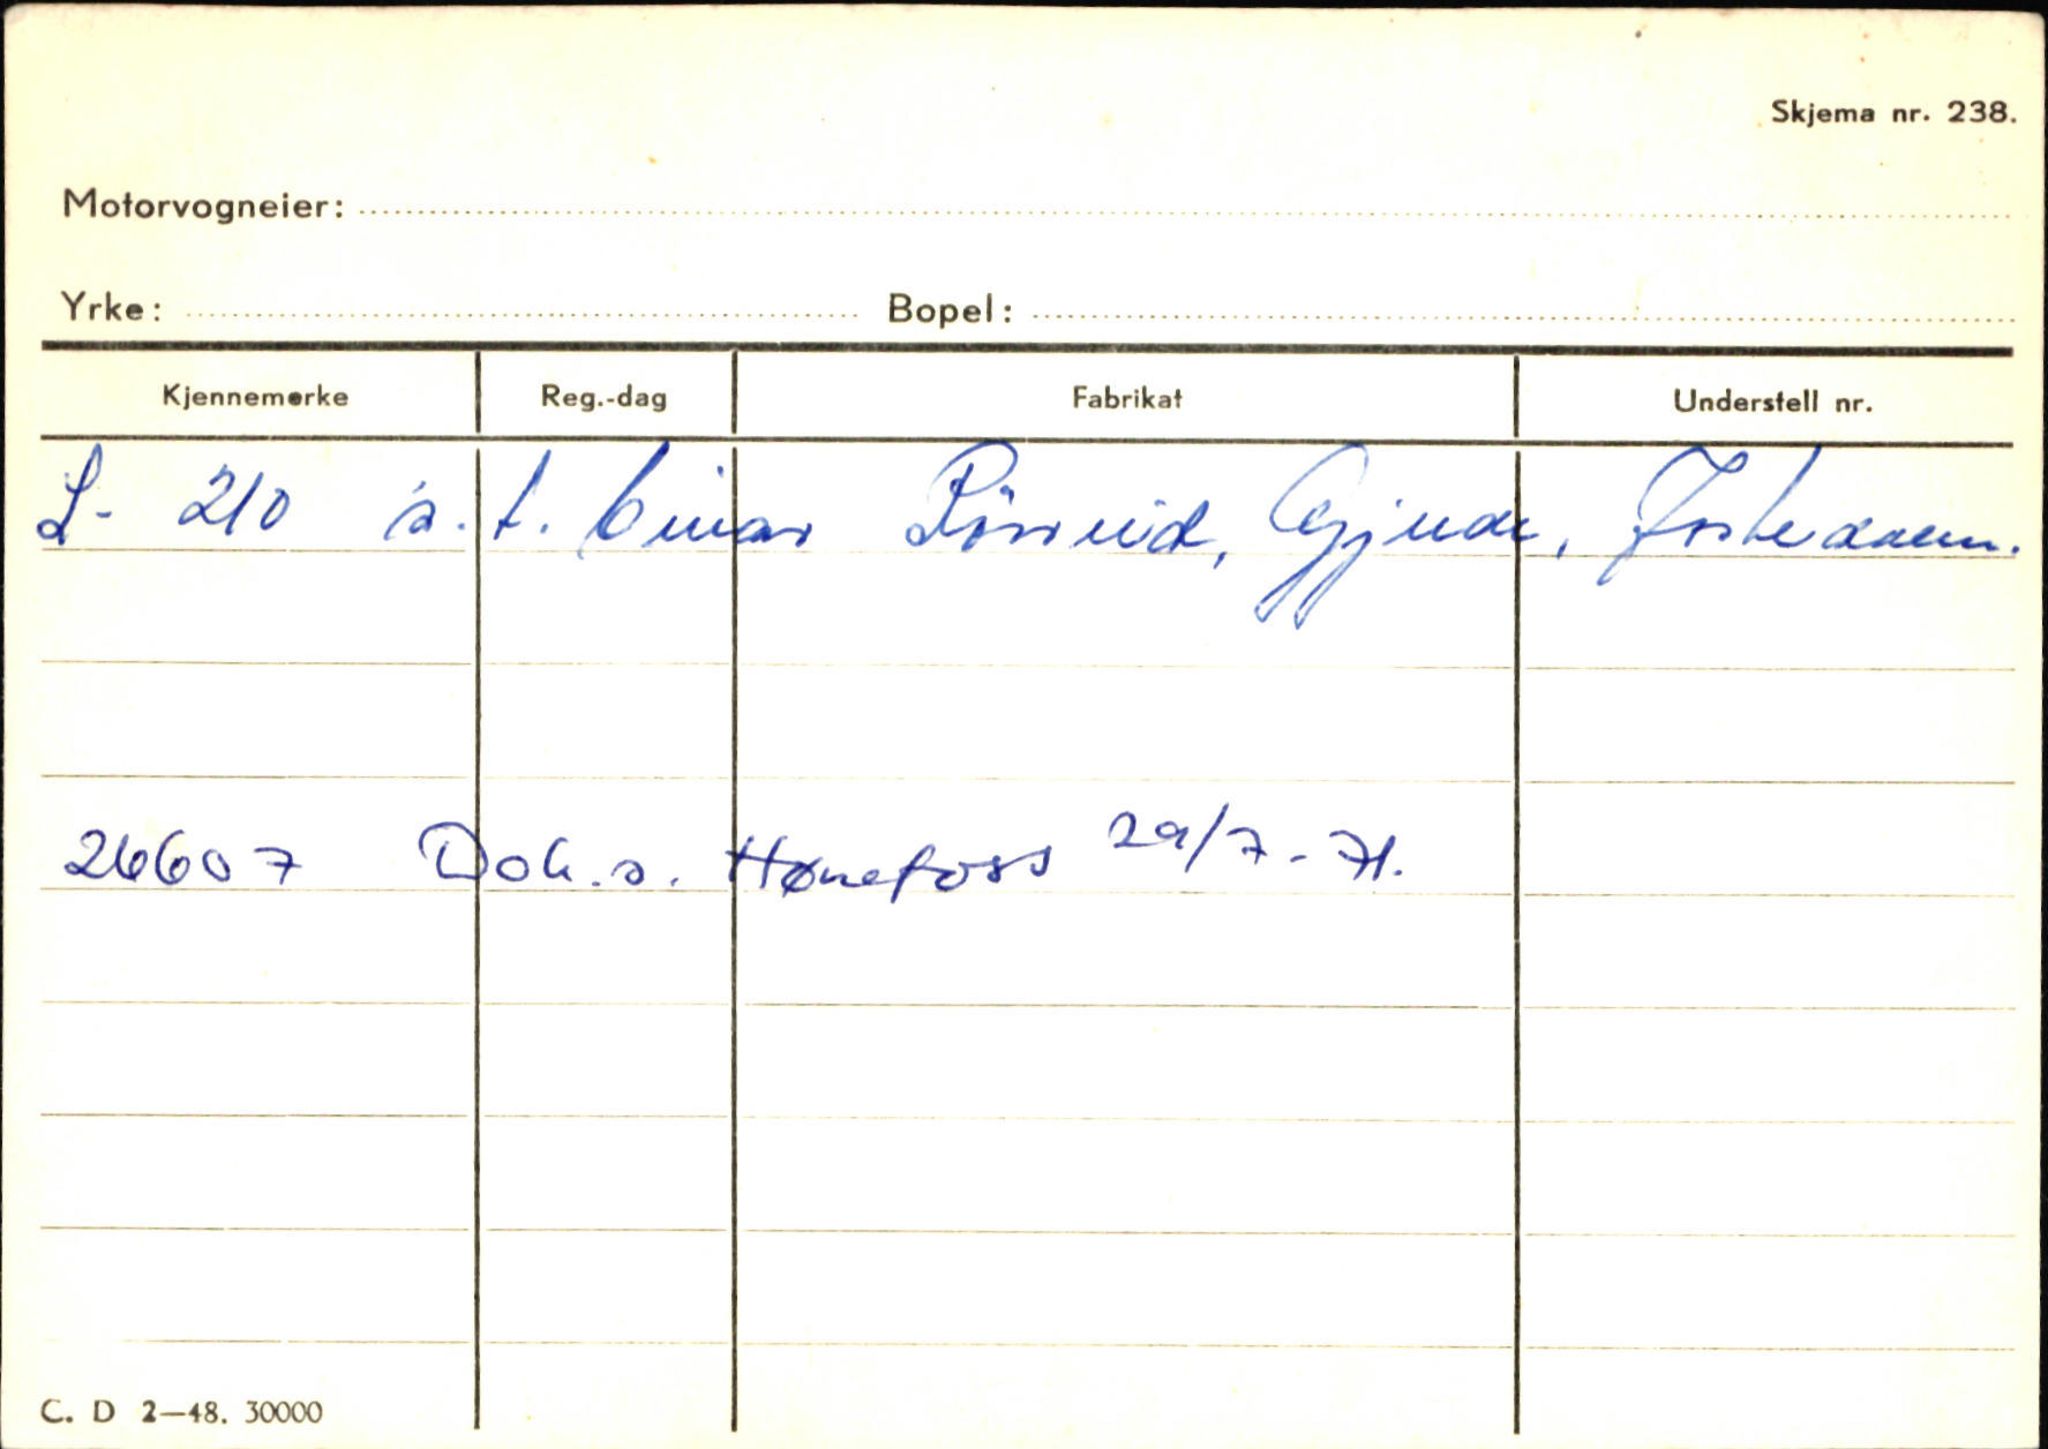 Skjema nr. 238.
Motorvogneier:
Yrke: Bopel:
Kjennemerke Reg.-dag Fabrikat Understell nr.
L- 210 s. t. Einar Gjerde, Jostedalen.
26607 Dok. s. Hønefoss 29/7-71.
C. D 2—48. 30000